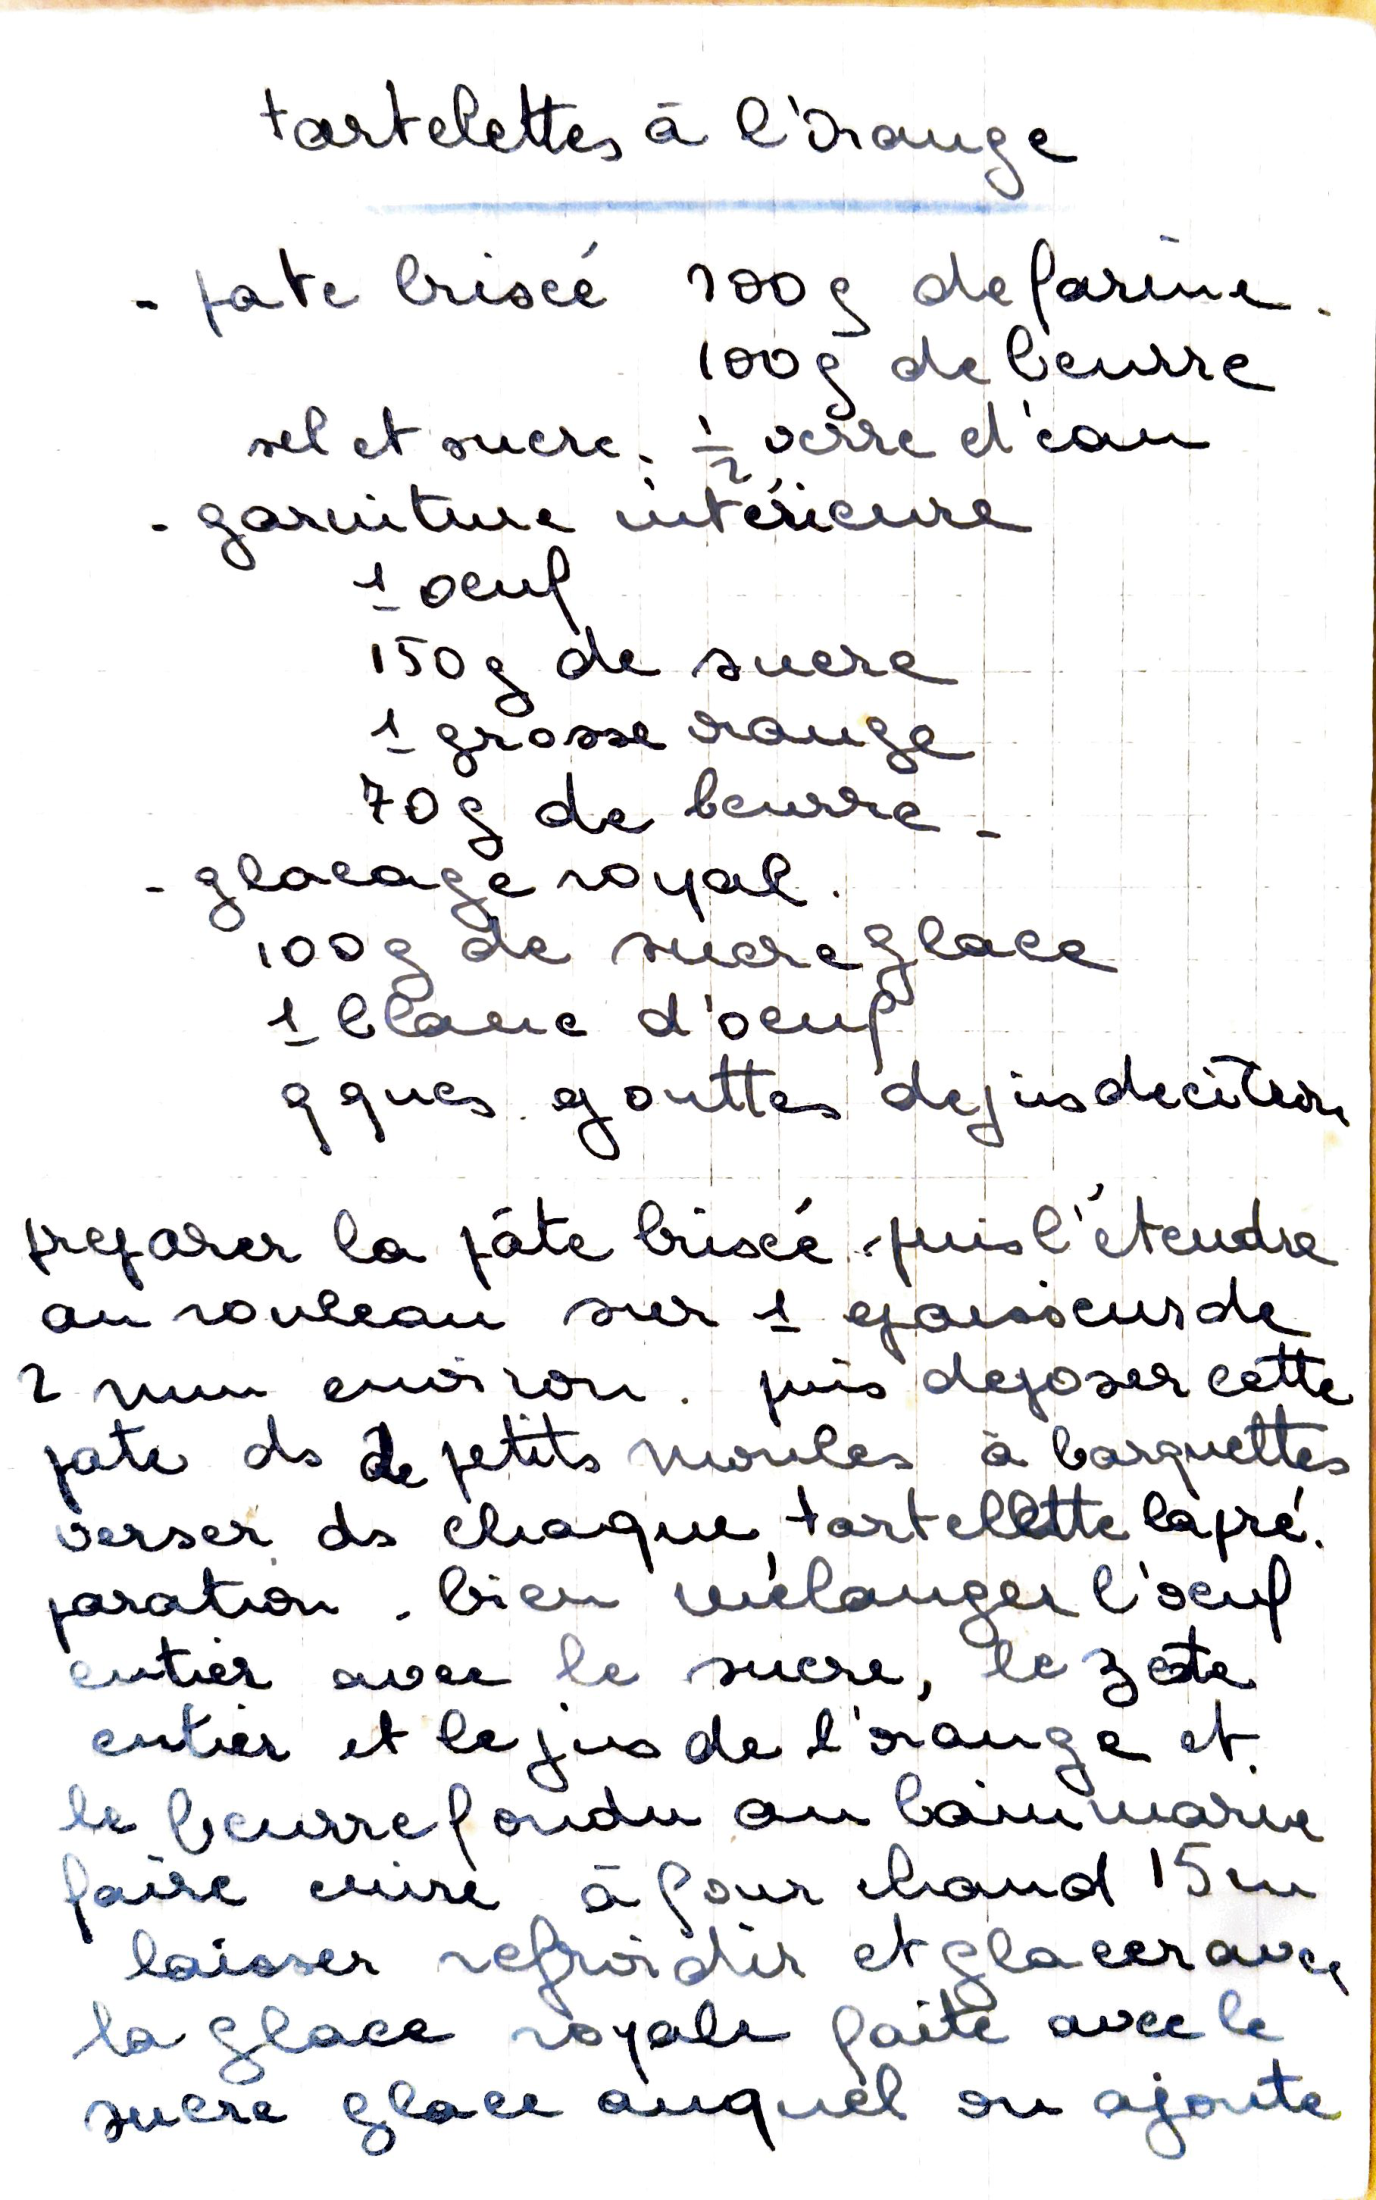 tartelettes à l'orange
- pate briseé 200g de farine.
100g de beurre
sel et sucre. 1/2 verre d'eau
- garniture intérieure
1 oeuf
150g de sucre
1 grosse orange
70g de beurre -
- glacage royal.
100g de sucre glace
1 blanc d'oeuf
qques gouttes de jus de citron
preparer la pâte briseé. puis l'étendre
au rouleau sur 1 epaisseur de
2 mm environ. puis deposer cette
pate ds de petits moules à barquettes
verser ds chaque tartellette la pré.
paration. bien mélanger l'oeuf
entier avec le sucre, le zeste
entier et le jus de l'orange et
le beurre fondu au bain marie
faire cuire à four chaud 15m
laisser refroidir et glacer avec
la glace royale faite avec le
sucre glace auquel on ajoute